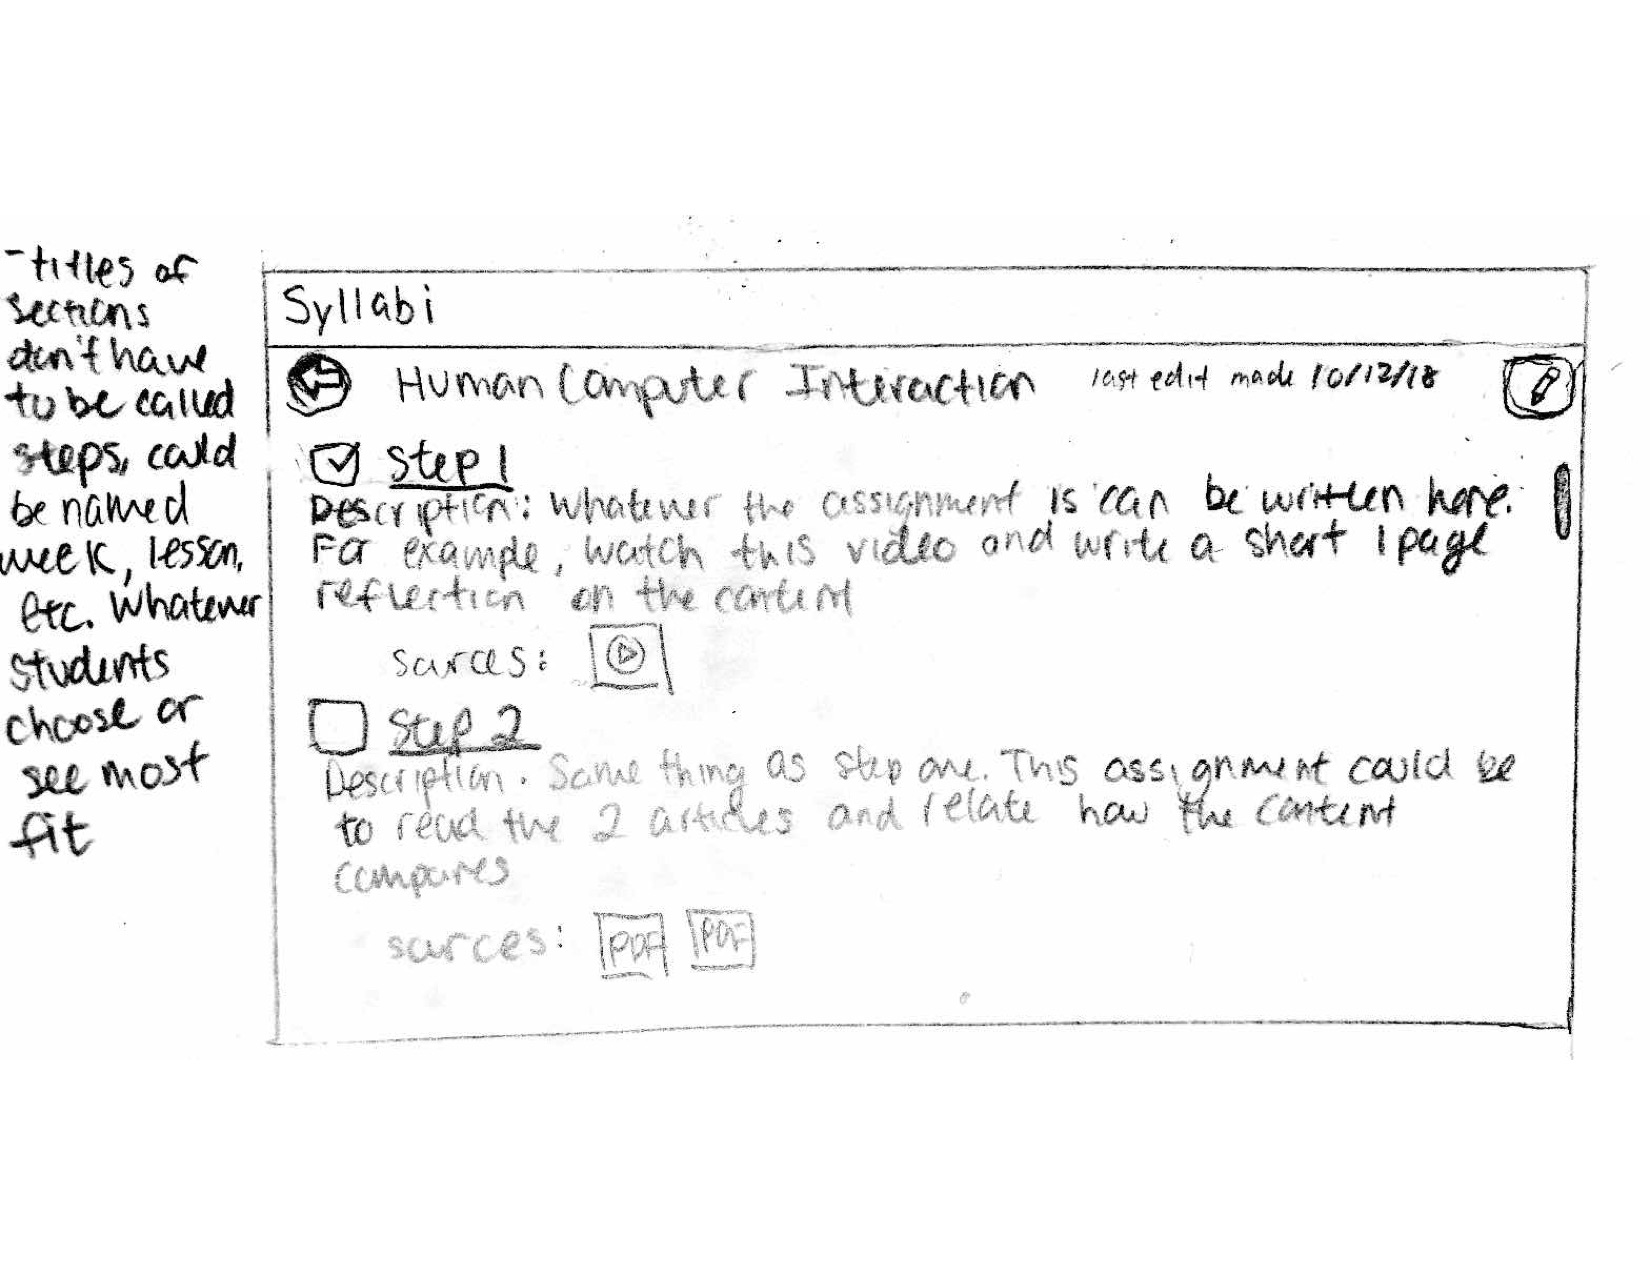 - titles of
sections
don't have
to be called
steps, could
be named
week, lesson,
etc. Whatever
students
choose or
see most
fit
Syllabi
Human Computer Interaction last edit made 10/12/18
Step 1
Description: Whatever the assignment is can be written here.
For example, watch this video and write a short 1 page
reflection on the content
sources:
Step 2
Description. Same thing as step one. This assignment could be
to read the 2 articles and relate how the content
compares
sources: PDF PDF